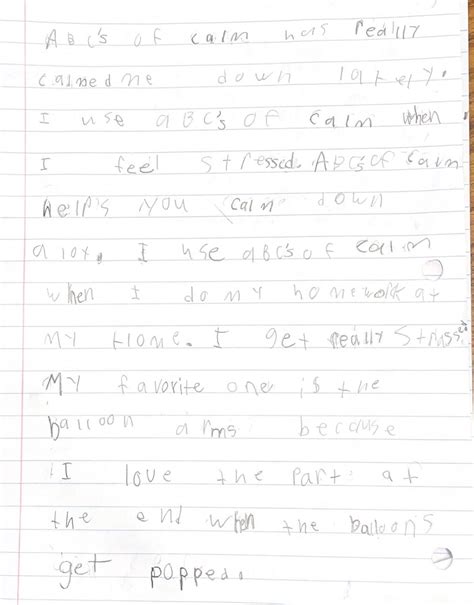 ABC's of calm has really
calmed me down lately.
I use aBC's of calm when
I feel stressed. ABC's of calm
Help's you calm down
a lot. I use aBC's of calm
when I do my homework at
MY Home. I get really Stressed.
MY favorite one is the
balloon arms because
I love the part at
the end when the balloons
get popped.